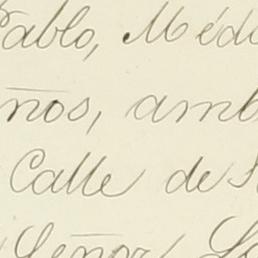 Pablo, Médi
ños, amb
Calle de S
Señor